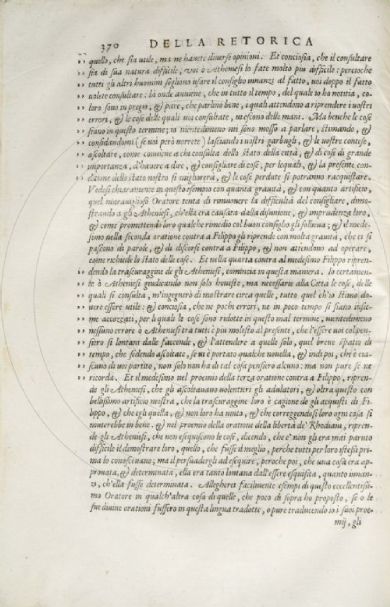 370 DELLA RETORICA
quello, che sia utile, ma ne havete diverse opinioni: Et conciosia, che il consultare
sia di sua natura difficile, voi ò Atheniesi lo fate molto più difficile: percioche
tutti gli altri huomini sogliono usare il consiglio innanzi al fatto, voi doppo il fatto
volete consultare: là onde auuiene, che in tutto il tempo, del quale io ho notitia, co-
loro sono in pregio, & pare, che parlino bene, i quali attendono a riprendere i vostri
errori, & le cose delle quali voi consultate, ui escono delle mani. Ma benche le cose
siano in questo termine; io nientedimeno mi sono messo a parlare, stimando, &
considandomi (se voi però vorrete) lasciando i vostri garbugli, & le vostre contese,
ascoltare, come conuiene a chi consulta dello stato della città, & di cose di grande
importanza, d'hauere a dire, & consigliare di cose, per lequali, & la presente con-
ditione dello stato nostro si migliorerà, & le cose perdute si potranno racquistare.
Vedesi chiaramente in questo esempio con quanta grauità, & con quanto artificio,
quel marauiglioso Oratore tenta di rimouere la difficultà del consigliare, dimo-
strando a gli Atheniesi, ch'ella era causata dalla disunione, & imprudenza loro,
& come promettendo loro qualche rimedio col buon consiglio gli solleua; & il mede-
simo nella seconda oratione contra a Filippo gli riprende con molta grauità, che ei si
pascono di parole, & di discorsi contra a Filippo, & non attendino ad operare,
come richiede lo stato delle cose. Et nella quarta contra al medesimo Filippo ripren-
dendo la trascuraggine de gli Atheniesi, comincia in questa maniera. Io certamen-
te ò Atheniesi giudicando non solo honeste, ma necessarie alla Città le cose, delle
quali si consulta, m'ingegnerò di mostrare circa quelle, tutto quel ch'io stimo do-
uere essere utile: & conciosia, che ne pochi errori, ne in poco tempo si siano insie-
me accozzati, per li quali le cose sono ridotte in questo mal termine; nientedimeno
nessuno errore ò Atheniesi tra tutti è più molesto al presente, che l'essere voi col pen-
siero sì lontani dalle faccende, & l'attendere a quelle solo, quel breue spatio di
tempo, che sedendo ascoltate, se ui è portato qualche nouella, & indi poi, che è cia-
scuno di uoi partito, non solo non ha di tal cosa pensiero alcuno: ma non pure se ne
ricorda. Et il medesimo nel proemio della terza oratione contra a Filippo, ripren-
de gli Atheniesi, che gli ascoltauano uolentieri gli adulatori, & oltra questo con
bellissimo artificio mostra, che la trascuraggine loro è cagione de gli acquisti di Fi-
lippo, & che egli quella, & non loro ha vinto, & che correggendosi loro ogni cosa si
muterebbe in bene. & nel proemio della oratione della libertà de' Rhodiani, ripren-
de gli Atheniesi, che non eseguiscono le cose, dicendo, che e' non gli era mai paruto
difficile il dimostrare loro, quello, che fusse il meglio, perche tutti per loro stessi prima
lo conosceuano; ma il persuadergli ad eseguire, peroche poi, che una cosa era ap-
prouata, & determinata, ella era tanto lontana dall'essere eseguita, quanto innan-
zi, ch'ella fusse determinata. Allegherei facilmente esempi di questo eccellentissi-
mo Oratore in qualch'altra cosa di quelle, che poco di sopra ho proposto, se o le
sue diuine orationi fussero in questa lingua tradotte, o pure traducendo io i suoi proe-
mij, gli